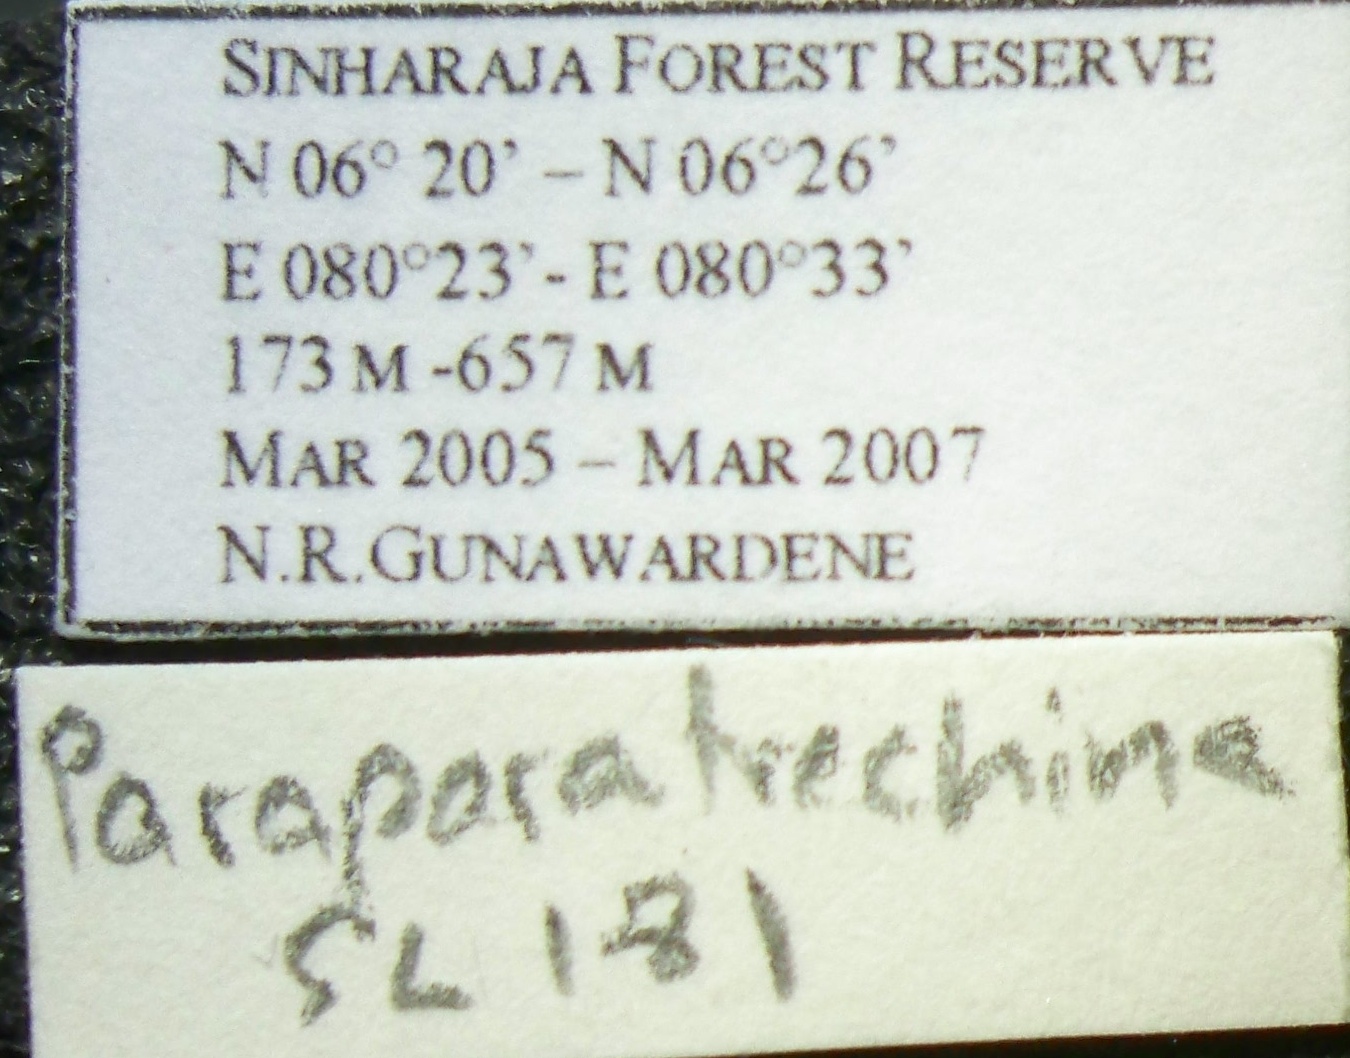 SINHARAJA FOREST RESERVE
N 06° 20' – N 06°26'
E 080°23'- E 080°33'
173 M -657 M
MAR 2005 – MAR 2007
N.R.GUNAWARDENE
Paraparatrechina
SL 181